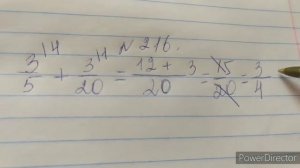 № 216.
3/5 ⁽⁴ + 3/20 ⁽¹ = 12 + 3/20 = 15/20 = 3/4
PowerDirector